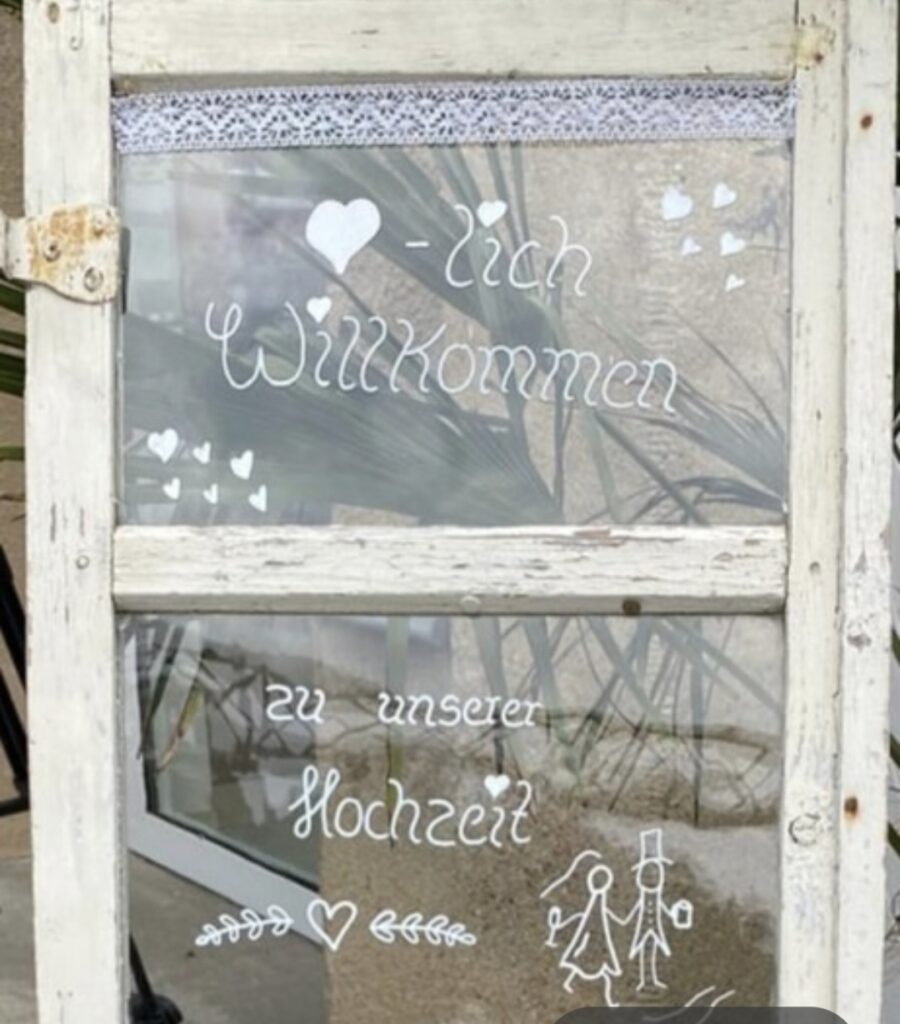 ♥-lich
Willkommen
zu unserer
Hochzeit